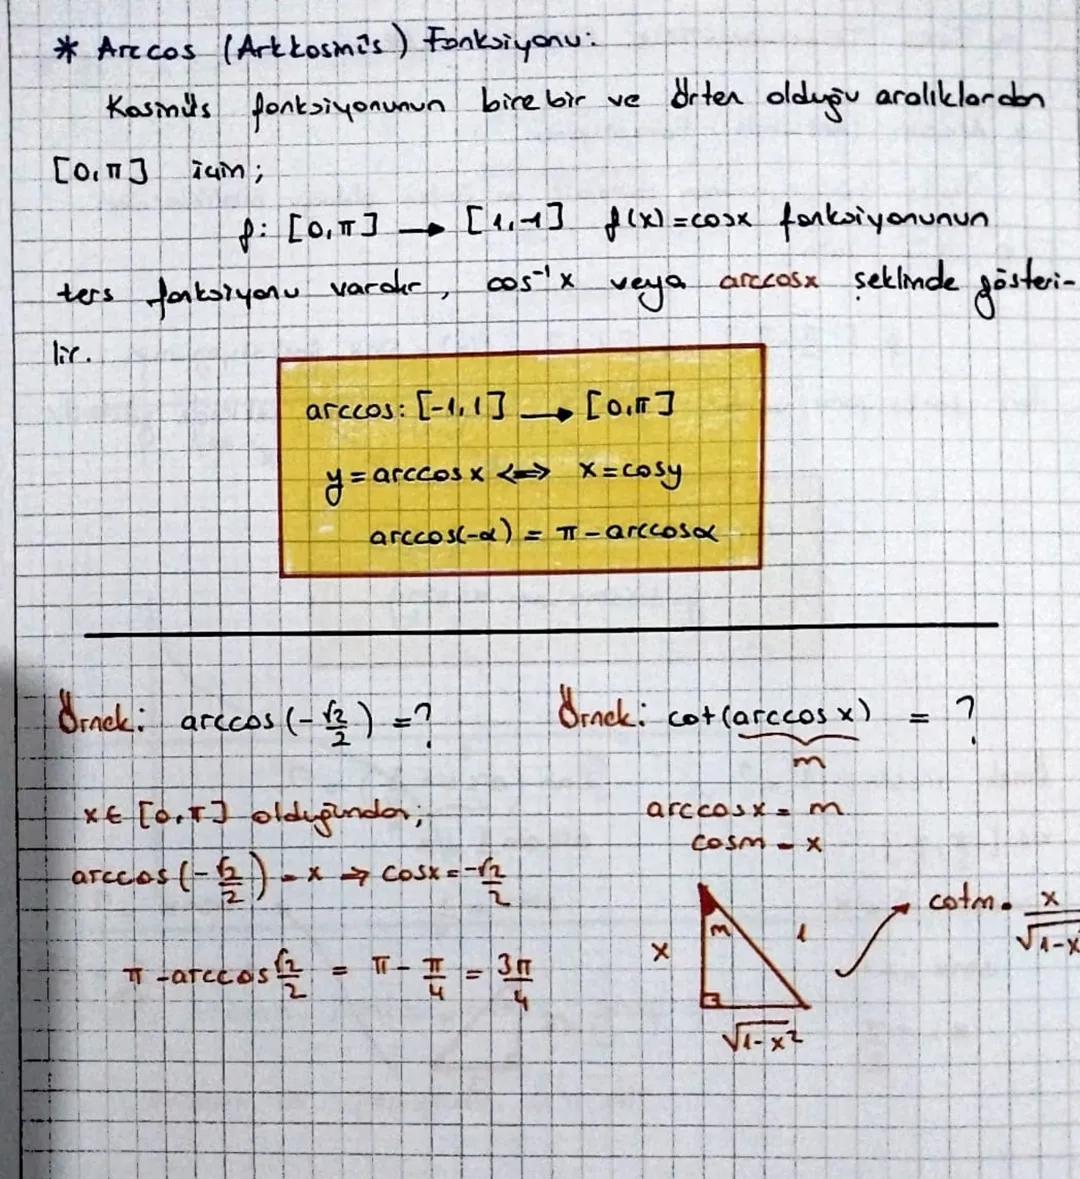 * Arccos (Arkkosinüs) Fonksiyonu:
Kosinüs fonksiyonunun birebir ve örten olduğu aralıklardan
[0,π] için;
f: [0,π] → [1,-1] f(x)=cosx fonksiyonunun
ters fonksiyonu vardır, cos⁻¹x veya arccosx şeklinde gösteri-
lir.
arccos: [-1,1] → [0,π]
y = arccos x <=> x = cosy
arccos(-α) = π - arccosα
Örnek: arccos (-√2/2) = ?
x ∈ [0,π] olduğundan;
arccos (-√2/2) = x → cosx = -√2/2
π - arccos √2/2 = π - π/4 = 3π/4
Örnek: cot (arccos x) = ?
m
arccosx = m
cosm = x
m
x
1
√1-x²
cotm = x/√1-x